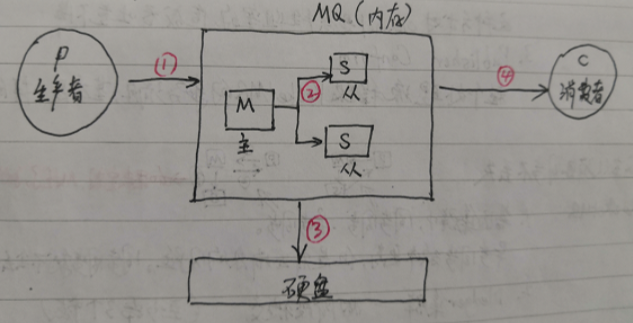 MQ (内存)
P
生产者
①
M
主
②
S
从
S
从
④
C
消费者
③
硬盘